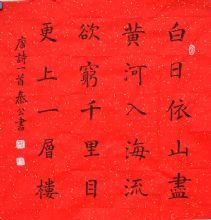 白日依山盡
黃河入海流
欲窮千里目
更上一層樓
唐詩一首泰公書